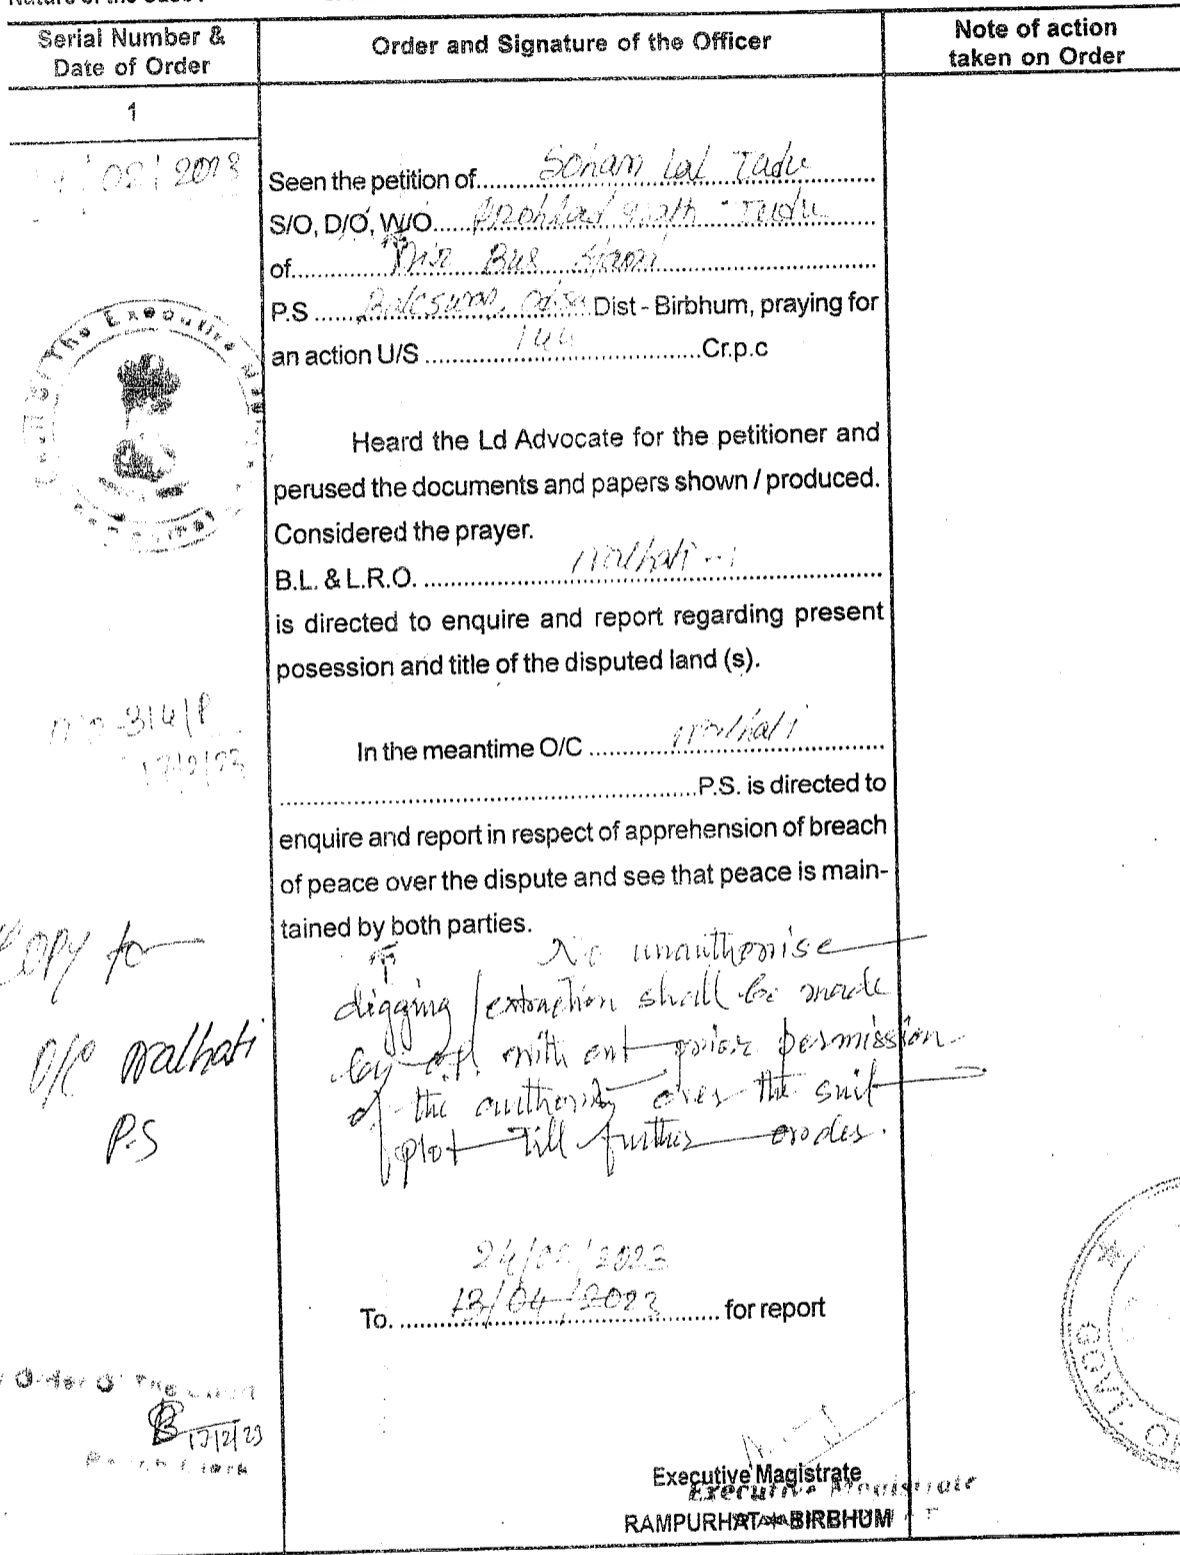 Serial Number &
Date of Order
Order and Signature of the Officer
Note of action
taken on Order
1
02/2023
Seen the petition of Sohan Lal Tudu
S/O, D/O, W/O Tudu
of Bus
P.S Dist - Birbhum, praying for
an action U/S 144 Cr.p.c
Heard the Ld Advocate for the petitioner and
perused the documents and papers shown / produced.
Considered the prayer.
B.L. & L.R.O. Nalhati - I
is directed to enquire and report regarding present
posession and title of the disputed land (s).
314/P
17/2/23
In the meantime O/C Nalhati
P.S. is directed to
enquire and report in respect of apprehension of breach
of peace over the dispute and see that peace is main-
tained by both parties.
No unauthorise
digging / extraction shall be made
by o.p. with out prior permission
of the authority over the suit
plot till further orders.
Copy to
O/C Nalhati
P.S
2023
13/04/2023
To. for report
Order Of The
17/2/23
Bench Clerk
Executive Magistrate
Executive Magistrate
RAMPURHAT BIRBHUM
GOVT. O